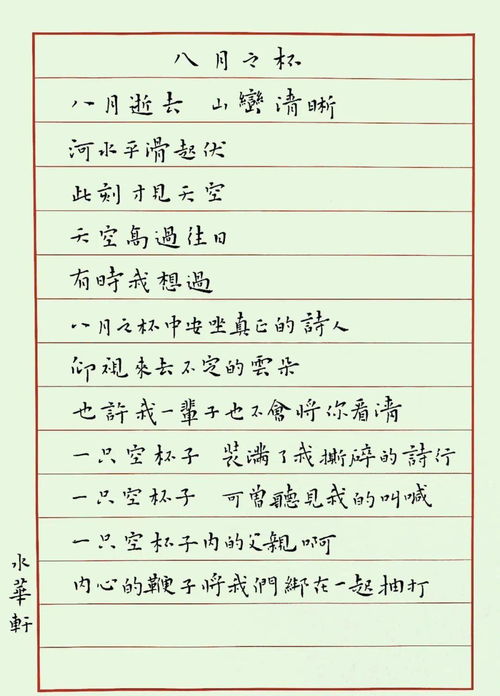 八月之杯
八月逝去 山巒清晰
河水平滑起伏
此刻才見天空
天空高過往日
有時我想過
八月之杯中安坐真正的詩人
仰視來去不定的雲朵
也許我一輩子也不會將你看清
一只空杯子 裝滿了我撕碎的詩行
一只空杯子 可曾聽見我的叫喊
一只空杯子內的父親啊
內心的鞭子將我們綁在一起抽打
水華軒